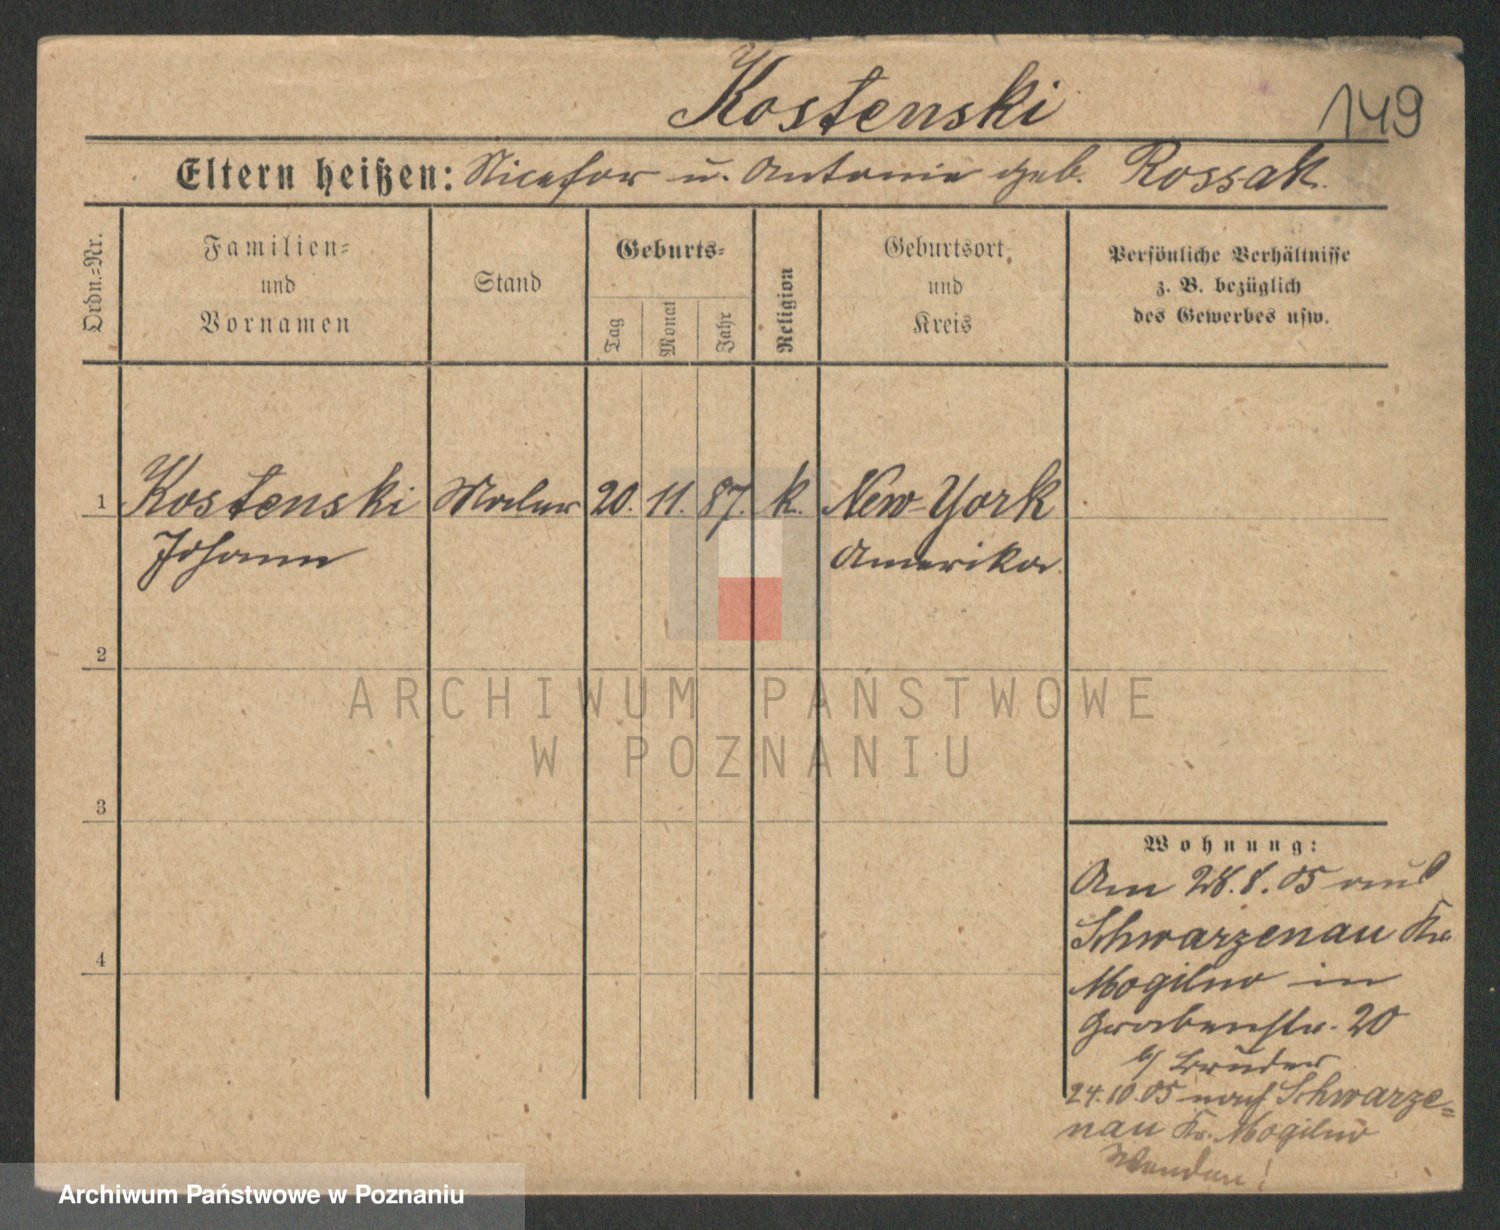 Kostenski
149
Eltern heißen: Nicefor u. Antonie geb. Rossak.
Ordn.-Nr.
Familien-
und
Vornamen
Stand
Geburts-
Tag
Monat
Jahr
Religion
Geburtsort
und
Kreis
Persönliche Verhältnisse
z. B. bezüglich
des Gewerbes usw.
1 Kostenski Maler 20. 11. 87. k. New-York
Johann Amerika
2
3
4
ARCHIWUM PAŃSTWOWE
W POZNANIU
Wohnung:
Am 28.8.05 aus
Schwarzenau Kr.
Mogilno in
Grabenstr. 20
b/ Bruder
24.10.05 nach Schwarze-
nau Kr. Mogilno
Archiwum Państwowe w Poznaniu